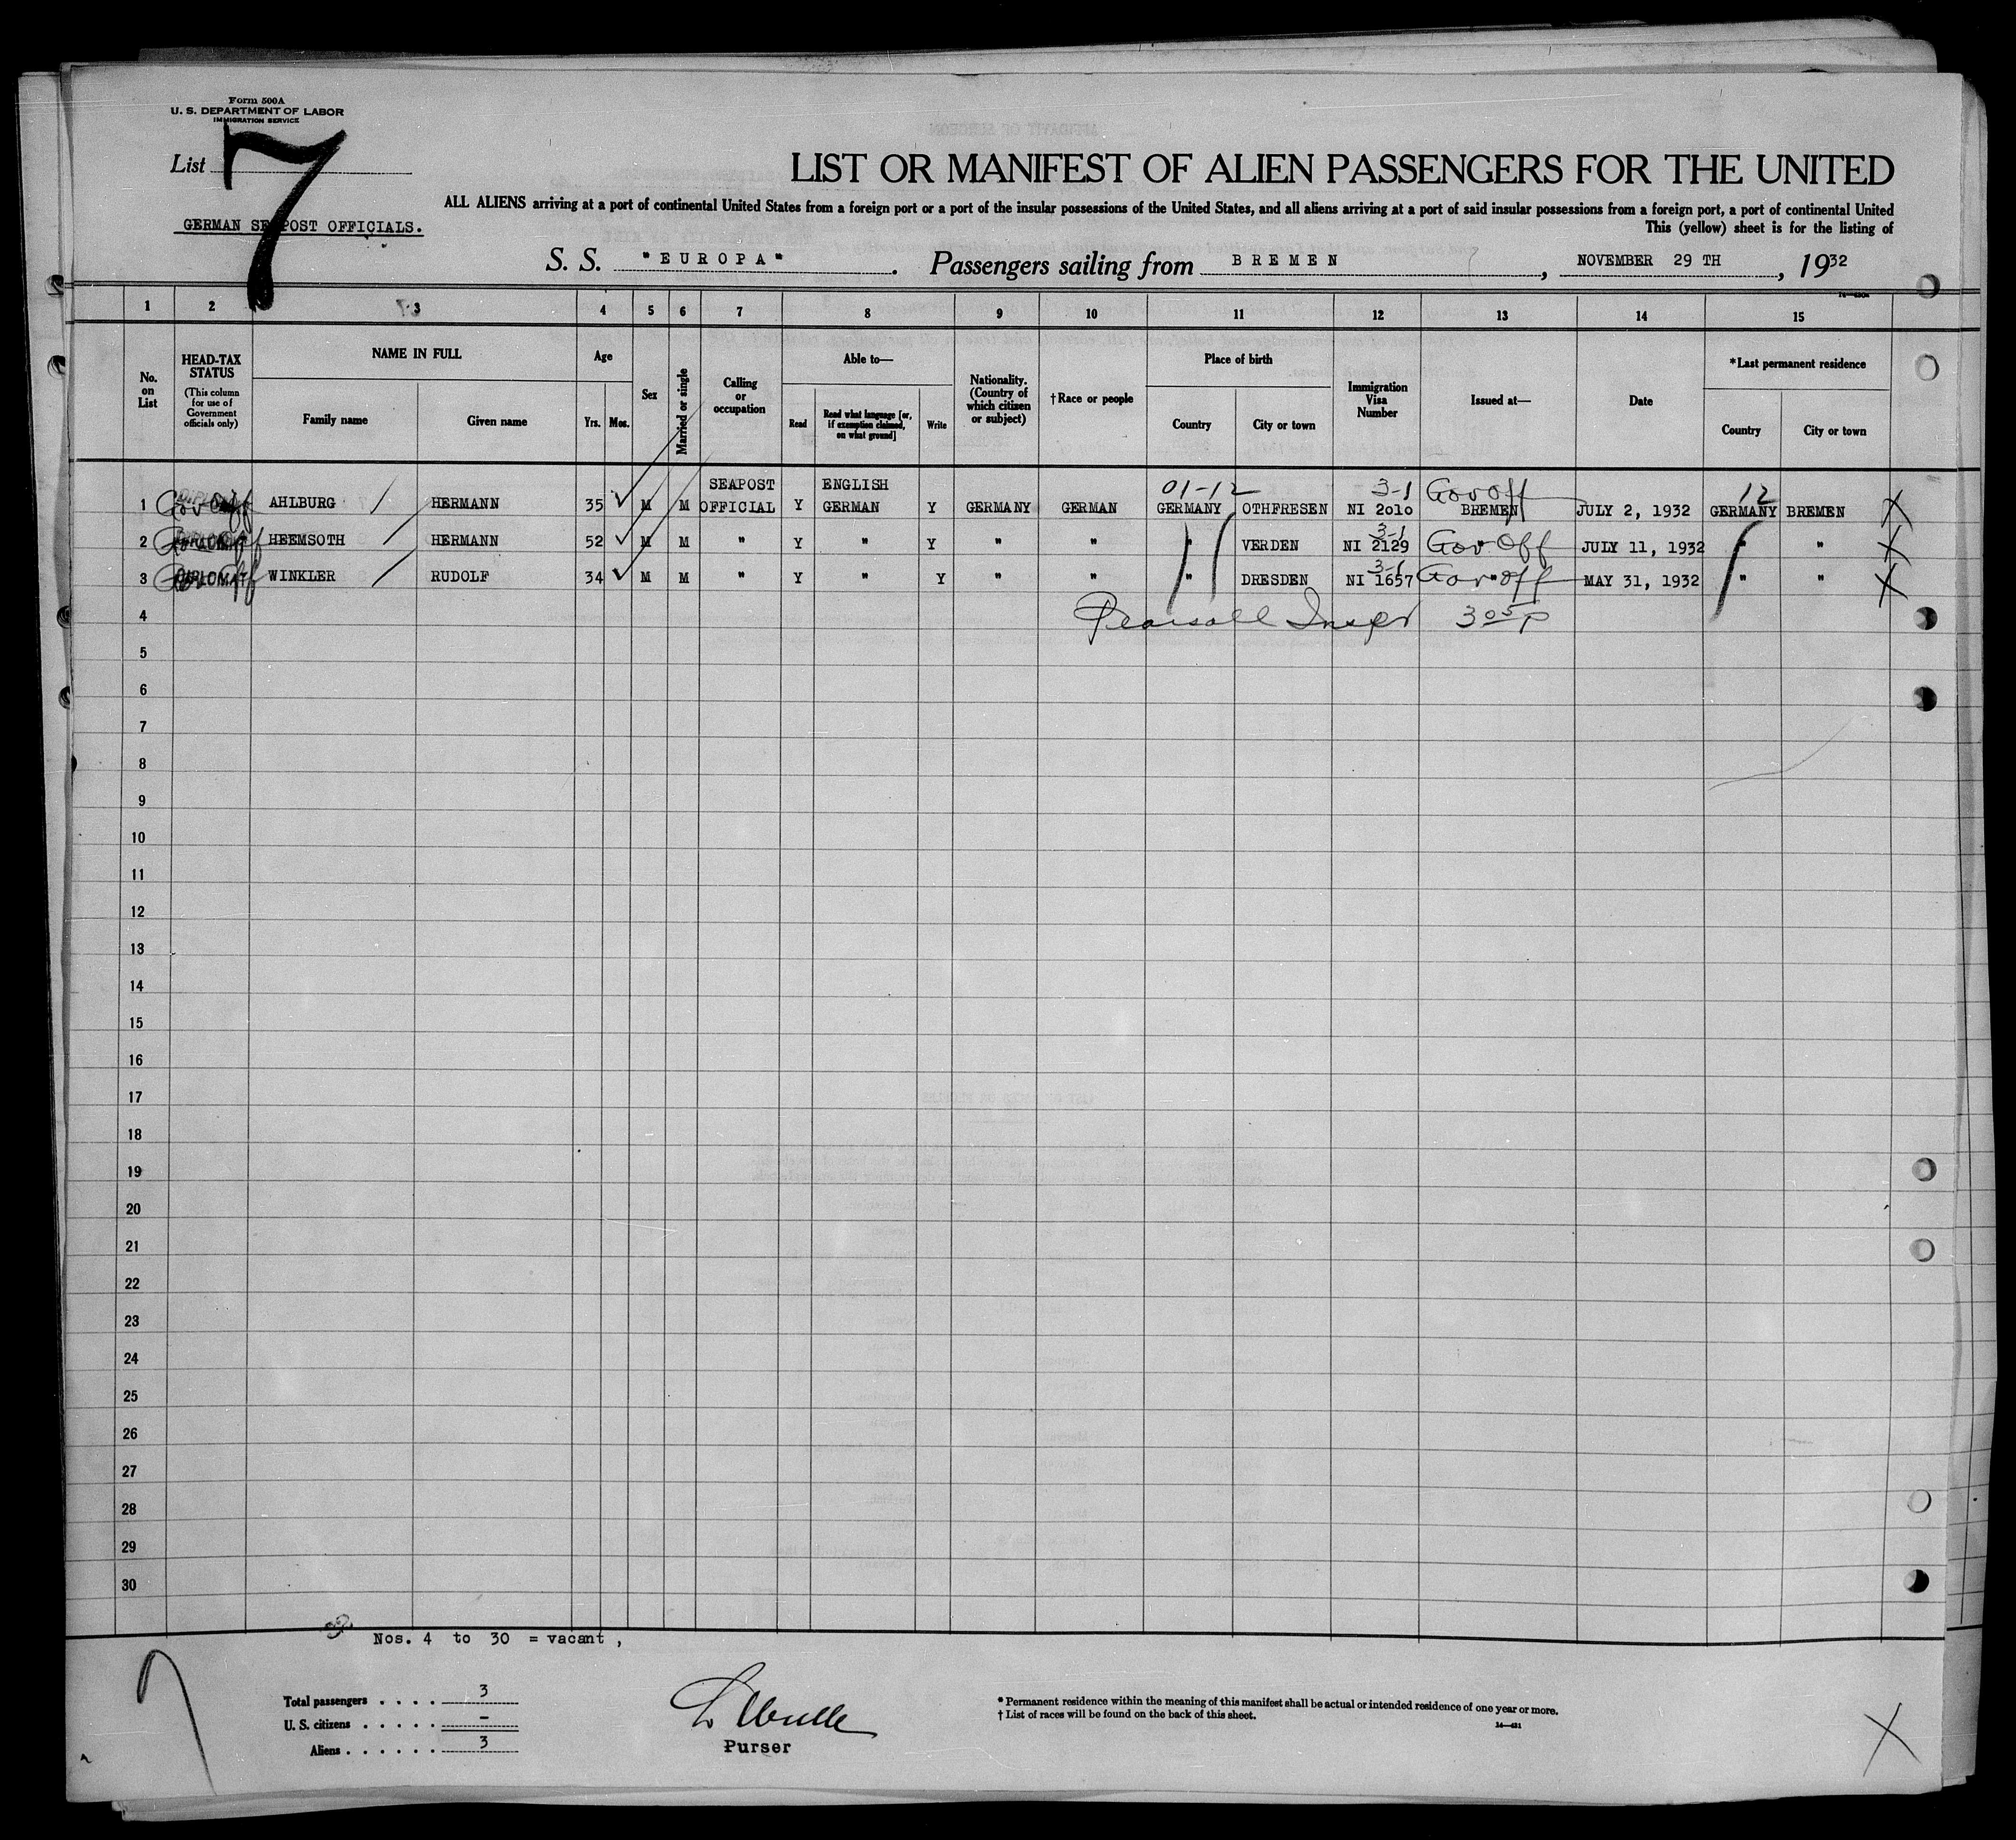 Form 500A
U. S. DEPARTMENT OF LABOR
IMMIGRATION SERVICE
List 7
GERMAN SEAPOST OFFICIALS.
LIST OR MANIFEST OF ALIEN PASSENGERS FOR THE UNITED
ALL ALIENS arriving at a port of continental United States from a foreign port or a port of the insular possessions of the United States, and all aliens arriving at a port of said insular possessions from a foreign port, a port of continental United
This (yellow) sheet is for the listing of
S. S. "EUROPA". Passengers sailing from BREMEN, NOVEMBER 29 TH, 1932
1 2 3 4 5 6 7 8 9 10 11 12 13 14 15
No. on List
HEAD-TAX STATUS (This column for use of Government officials only)
NAME IN FULL
Family name Given name
Age
Yrs. Mos.
Sex
Married or single
Calling or occupation
Able to—
Read
Read what language [or, if exemption claimed, on what ground]
Write
Nationality. (Country of which citizen or subject)
†Race or people
Place of birth
Country City or town
Immigration Visa Number
Issued at—
Date
*Last permanent residence
Country City or town
SEAPOST ENGLISH 01-12 3-1 Gov Off 12
1 Gov Off AHLBURG HERMANN 35 M M OFFICIAL Y GERMAN Y GERMANY GERMAN GERMANY OTHFRESEN NI 2010 BREMEN JULY 2, 1932 GERMANY BREMEN X
3-1
2 Gov Off HEEMSOTH HERMANN 52 M M " Y " Y " " " VERDEN NI 2129 Gov Off " JULY 11, 1932 " " X
3-1
3 Gov Off DIPLOMAT WINKLER RUDOLF 34 M M " Y " Y " " " DRESDEN NI 1657 Gov Off " MAY 31, 1932 " " X
4 Pearsall Inspr 3 05 P
5
6
7
8
9
10
11
12
13
14
15
16
17
18
19
20
21
22
23
24
25
26
27
28
29
30
Nos. 4 to 30 = vacant,
Total passengers . . . . 3
U. S. citizens . . . . . –
Aliens . . . . . . 3
Purser
* Permanent residence within the meaning of this manifest shall be actual or intended residence of one year or more.
† List of races will be found on the back of this sheet.
14—421
X